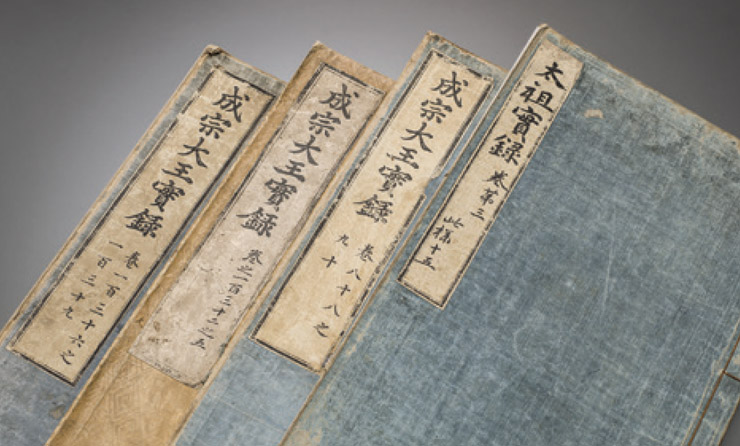 太祖實録 卷第三 此樣十五
成宗大王實録 卷八十八之
九十
成宗大王實録 卷之一百三十三之五
成宗大王實録 卷一百三十六之
一百三十九